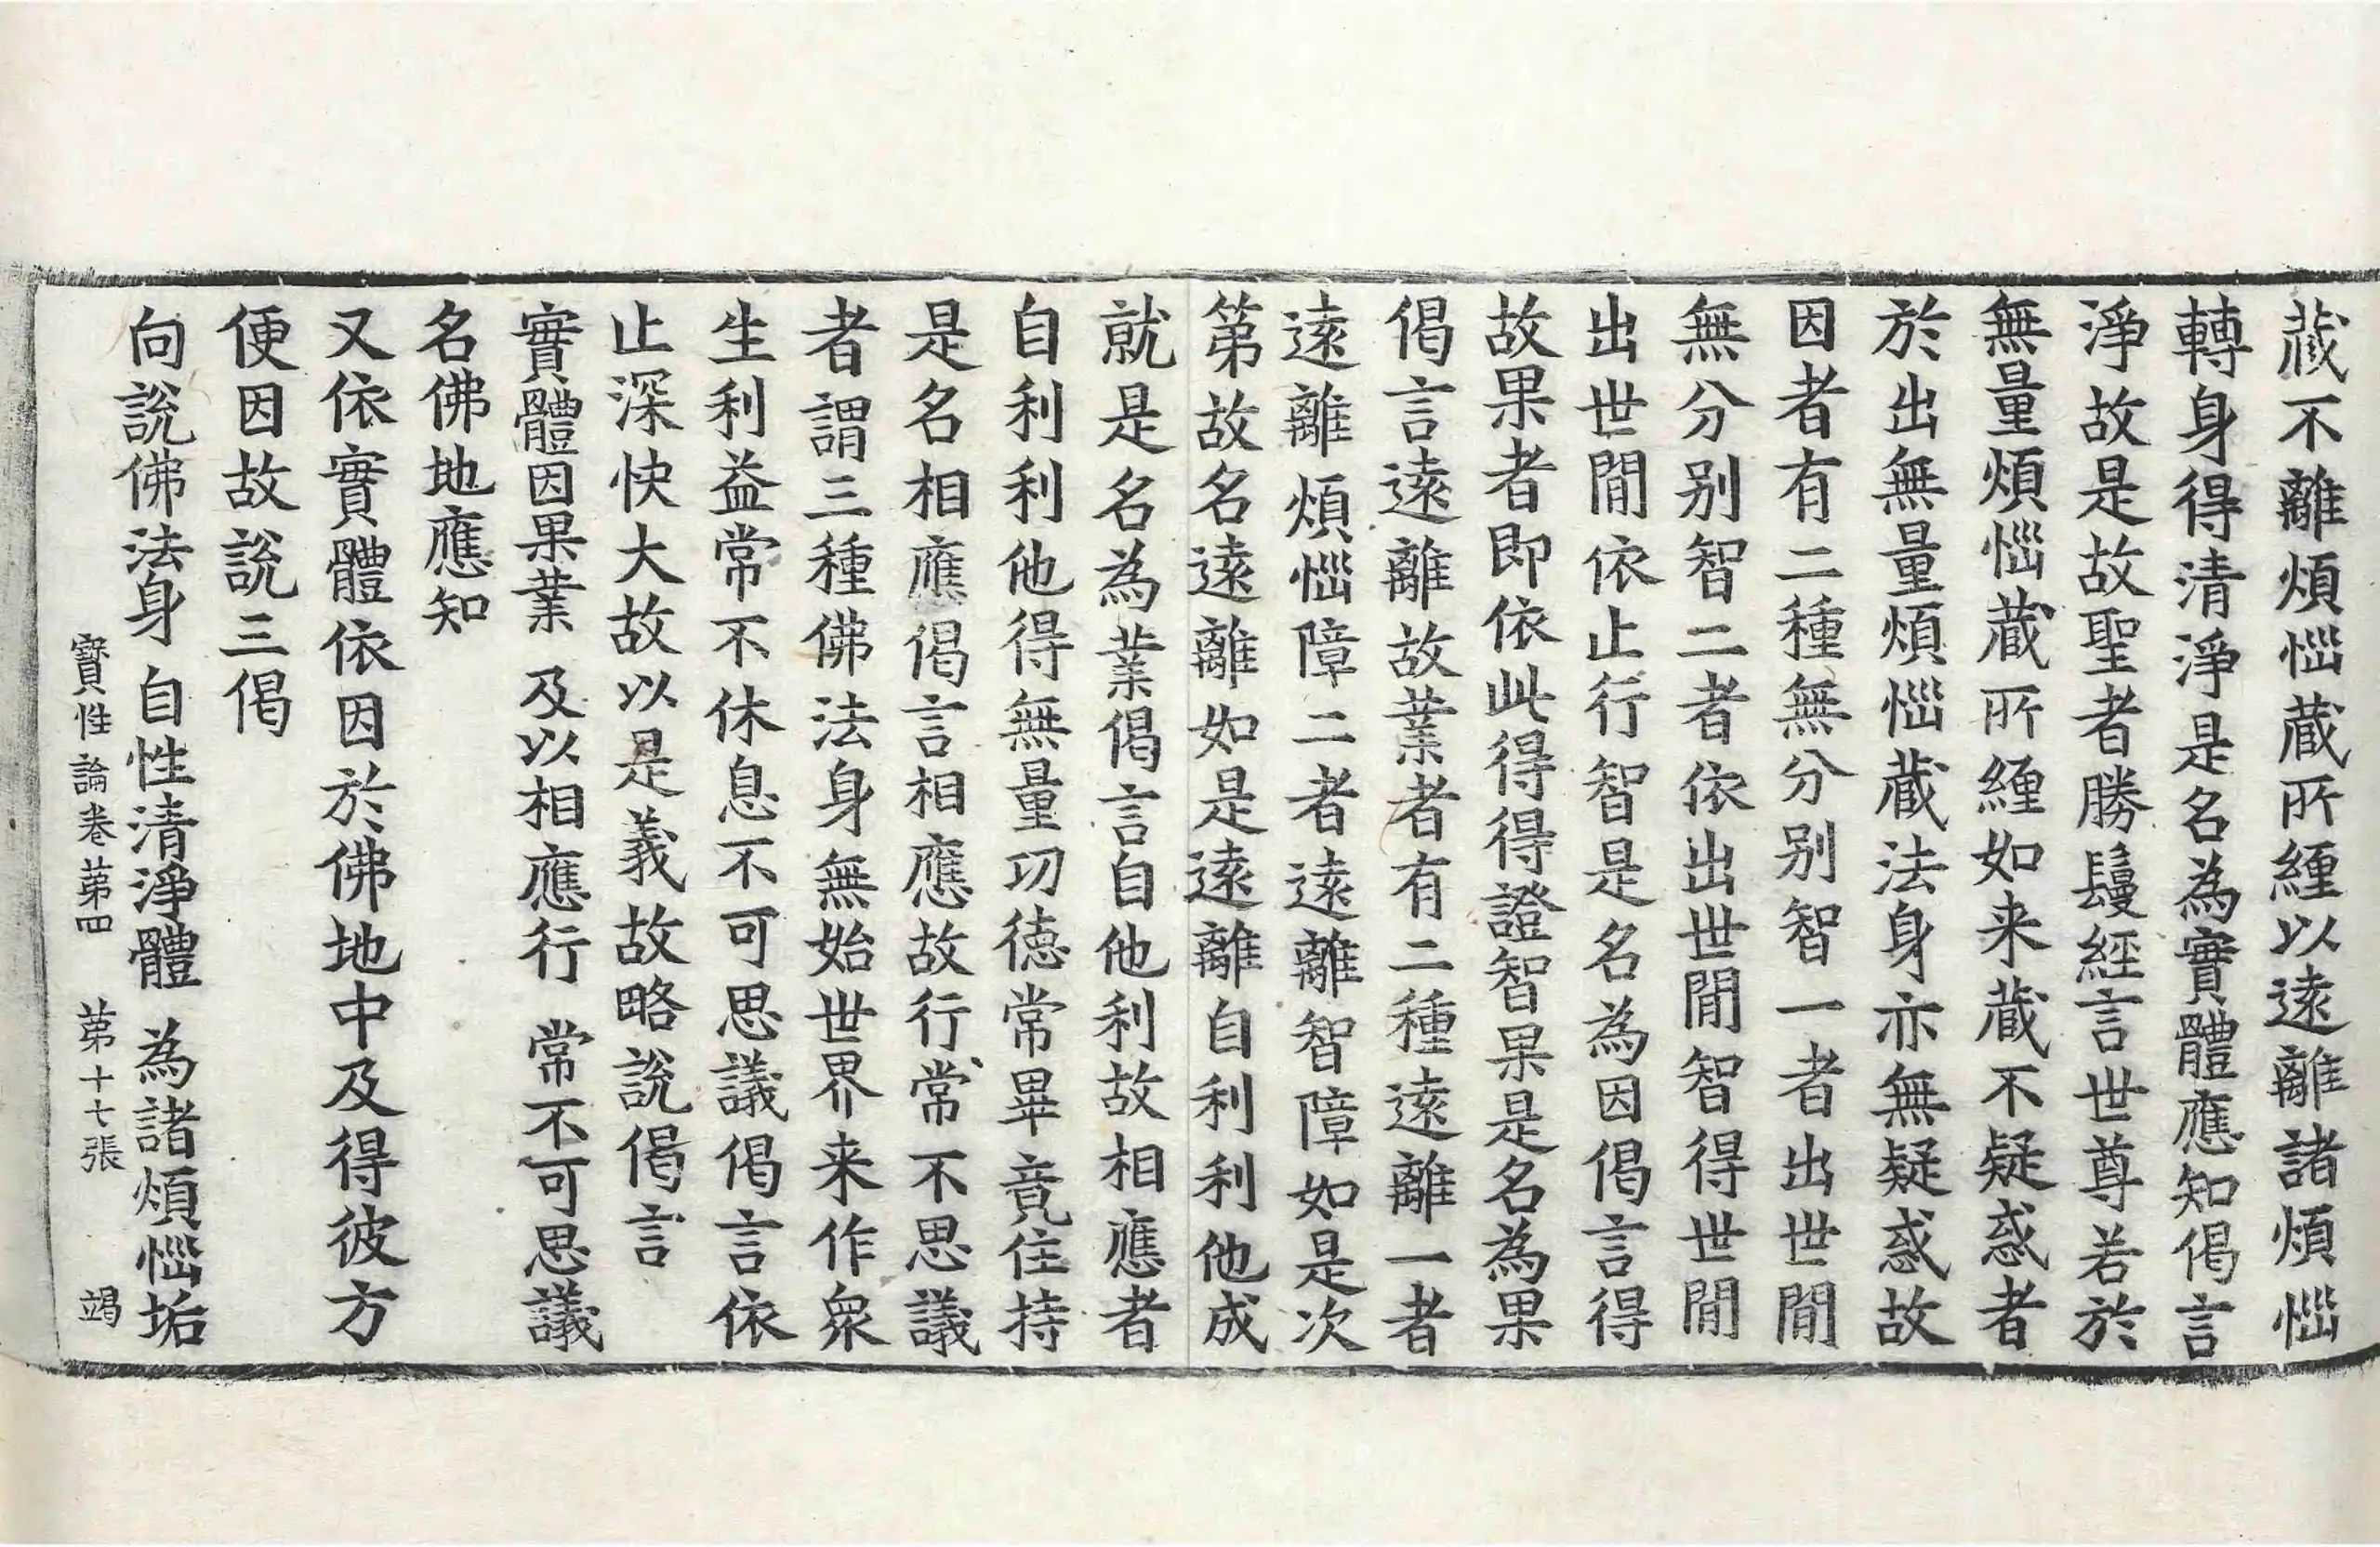 藏不離煩惱藏所纏以遠離諸煩惱
轉身得清淨是名為實體應知偈言
淨故是故聖者勝鬘經言世尊若於
無量煩惱藏所纏如来藏不疑惑者
於出無量煩惱藏法身亦無疑惑故
因者有二種無分別智一者出世間
無分別智二者依出世間智得世間
出世間依止行智是名為因偈言得
故果者即依此得得證智果是名為果
偈言遠離故業者有二種遠離一者
遠離煩惱障二者遠離智障如是次
第故名遠離如是遠離自利利他成
就是名為業偈言自他利故相應者
自利利他得無量功德常畢竟住持
是名相應偈言相應故行常不思議
者謂三種佛法身無始世界来作衆
生利益常不休息不可思議偈言依
止深快大故以是義故略說偈言
實體因果業 及以相應行 常不可思議
名佛地應知
又依實體依因於佛地中及得彼方
便因故說三偈
向說佛法身 自性清淨體 為諸煩惱垢
寶性論卷第四 第十七張 竭